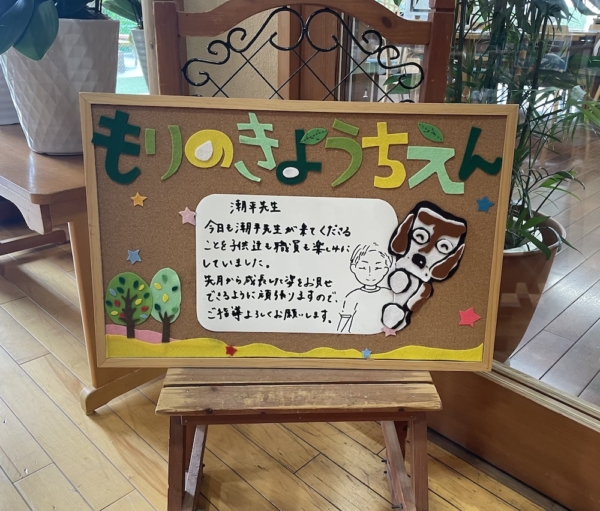 もりのきょうちえん
潮平先生
今日も潮平先生が来てくださる
ことを子供達も職員も楽しみに
していました。
先月から成長した姿をお見せ
できるように頑張りますので、
ご指導よろしくお願いします。